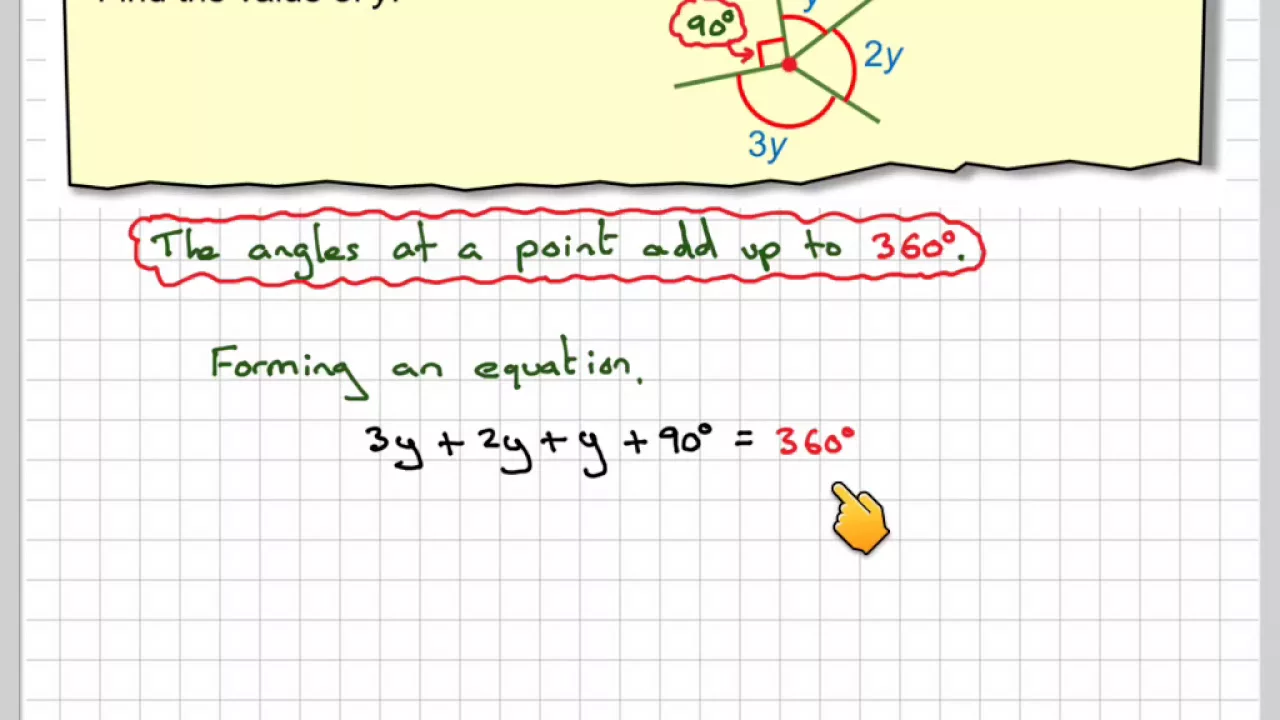 Find the value of y.
y
90°
2y
3y
The angles at a point add up to 360°.
Forming an equation.
3y + 2y + y + 90° = 360°